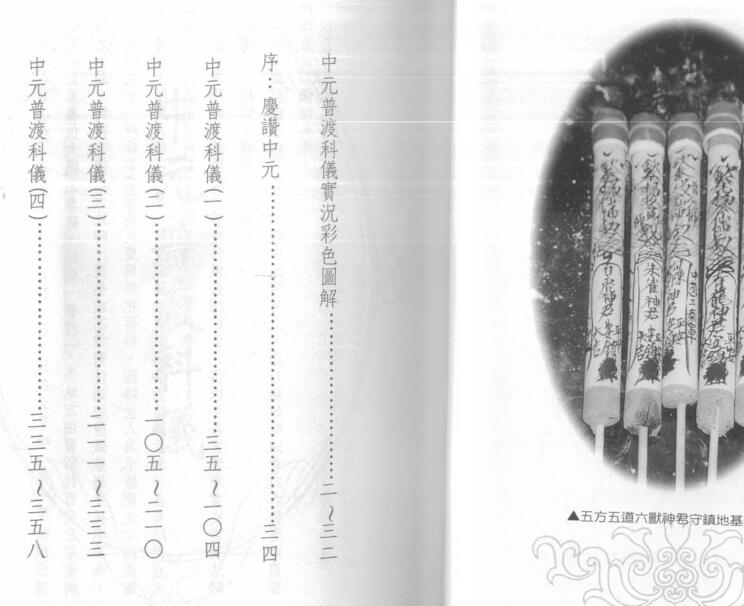 ▲五方五道六獸神君守鎮地基
中元普渡科儀實況彩色圖解……………二～三二
序：慶讚中元……………三四
中元普渡科儀(一)……………三五～一〇四
中元普渡科儀(二)……………一〇五～二一〇
中元普渡科儀(三)……………二一一～三三三
中元普渡科儀(四)……………三三五～三五八